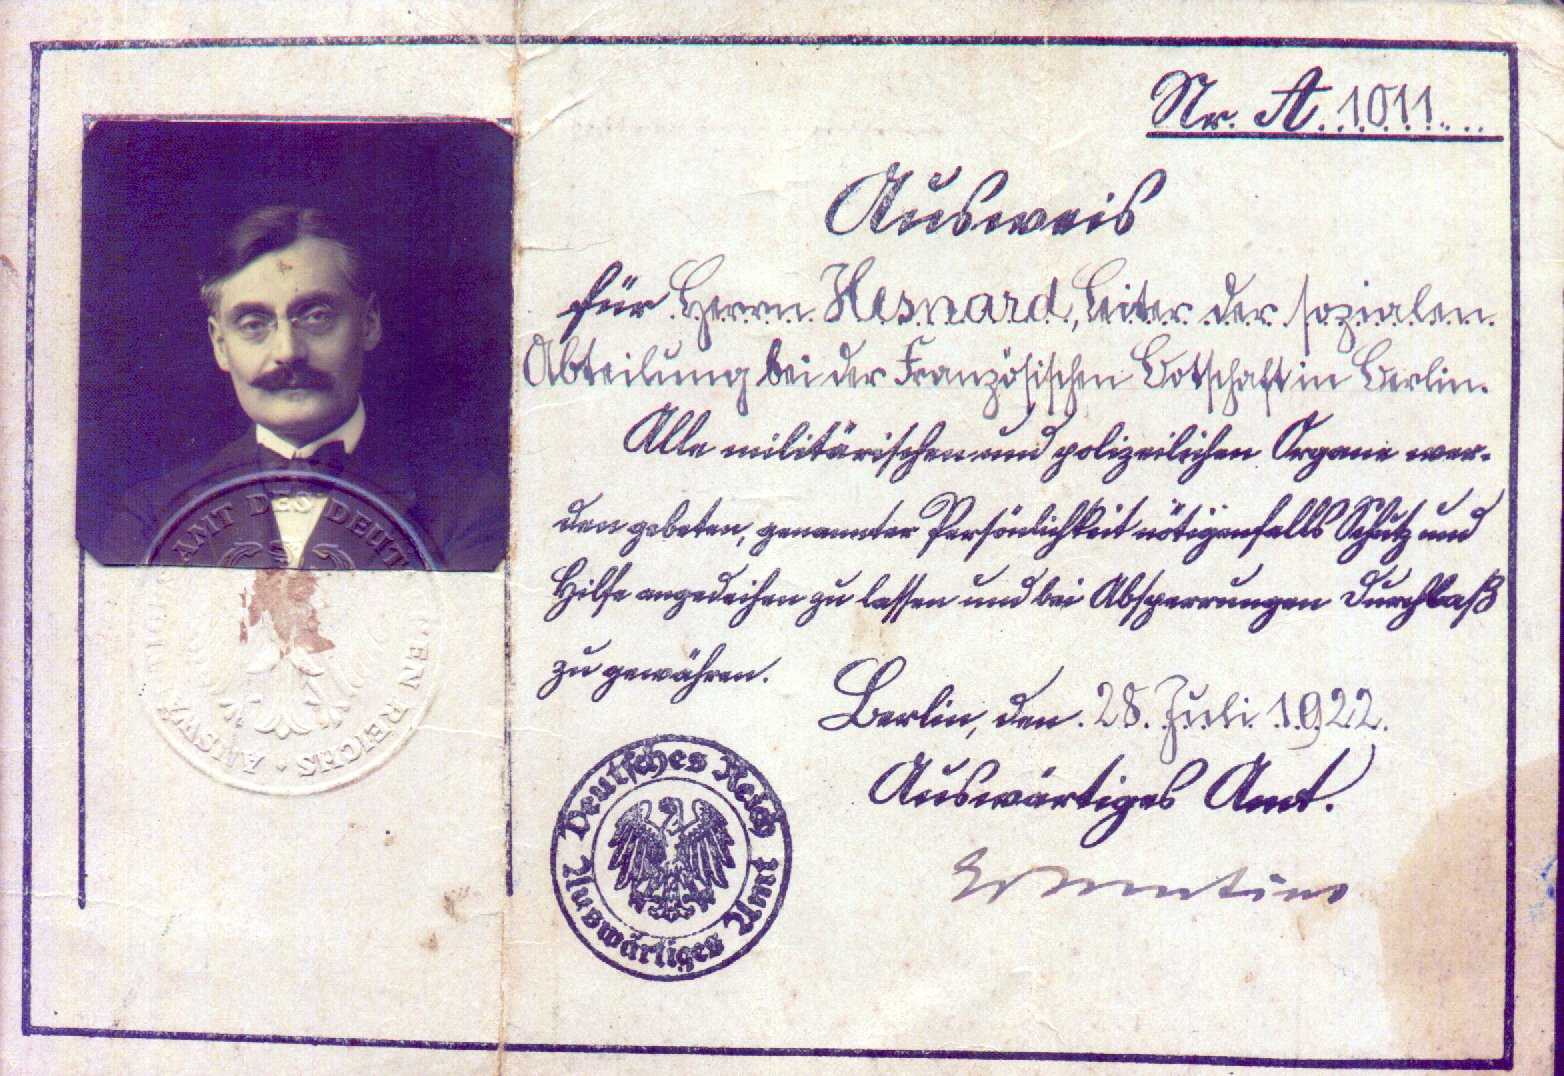 Nr. A. 1011.
Ausweis
für Herrn Hesnard, Leiter der sozialen
Abteilung bei der Französischen Botschaft in Berlin.
Alle militärischen und polizeilichen Organe wer-
den gebeten, genannter Persönlichkeit nötigenfalls Schutz und
Hilfe angedeihen zu lassen und bei Absperrungen Durchlaß
zu gewähren.
Berlin, den 28. Juli 1922.
Auswärtiges Amt.
Deutsches Reich
Auswärtiges Amt
AMT DES DEUT EN REICHS · AUSWÄ